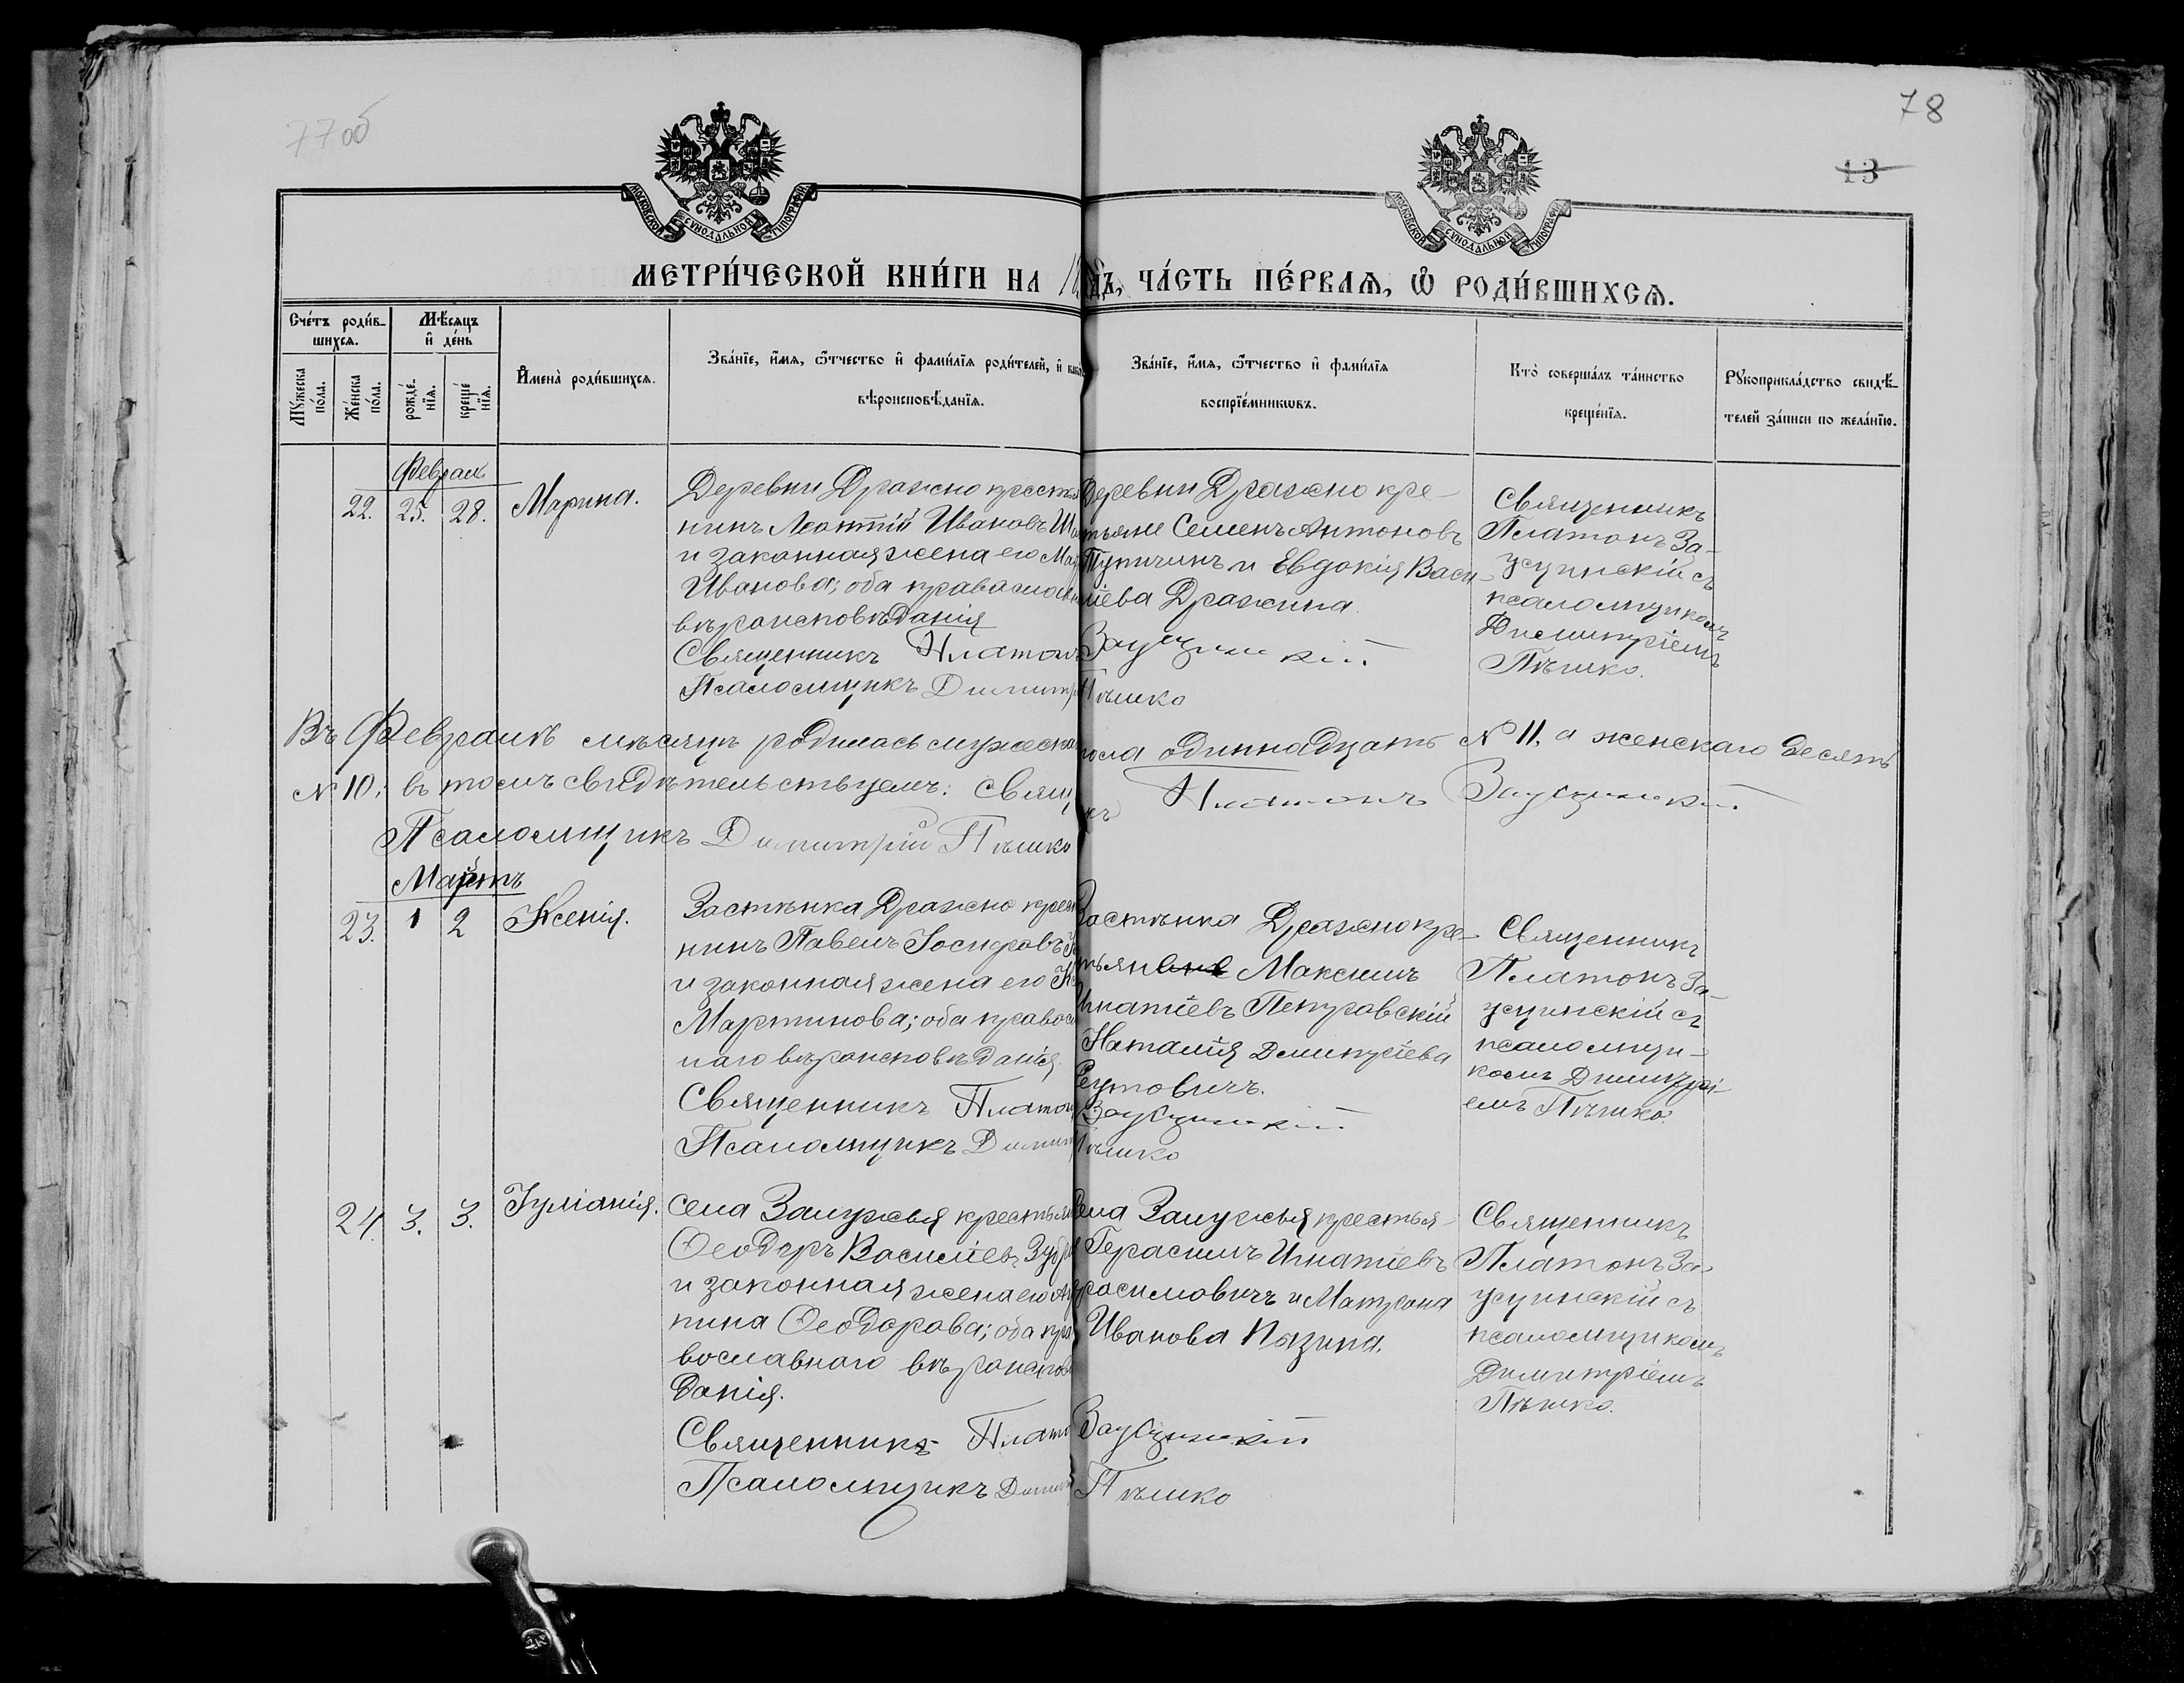 77об
78
13
МОСКОВСКОЙ СѴНОДАЛЬНОЙ ТИПОГРАФІИ
МОСКОВСКОЙ СѴНОДАЛЬНОЙ ТИПОГРАФІИ
МЕТРИ́ЧЕСКОЙ КНИ́ГИ НА
ДЪ, ЧА́СТЬ ПЕ́РВАѦ, Ѽ РОДИ́ВШИХСѦ.
Сче́тъ роди́в-
шихсѧ.
Мѣ́сѧцъ
и҆ де́нь
Мꙋ́жеска
по́ла.
Же́нска
по́ла.
рожде́-
нїѧ.
креще́
нїѧ.
И҆мена̀ роди́вшихсѧ.
Зва́нїе, и҆́мѧ, ѻ҆́тчество и҆ фами́лїѧ роди́телей, и҆
вѣроисповѣ́данїѧ.
Зва́нїе, и҆́мѧ, ѻ҆́тчество и҆ фами́лїѧ
воспрїе́мникѡвъ.
Кто̀ соверша́лъ та́инство
креще́нїѧ.
Рꙋкоприкла́дство свидѣ́-
телей за́писи по жела́нїю.
Феврал
22. 25. 28. Марина.
Деревни Дражно кресть
нинъ Леонтій Ивановъ
и законная жена его
Иванова; оба православн
вѣроисповѣданія
Священникъ Платонъ
Псаломщикъ Димитр
Деревни Дражно кре-
тьяне Семенъ Антоновъ
и Евдокія Васи-
ліева Дражина.
Заусцинскій
Пѣшко
Священникъ
Платонъ За-
усцинскій съ
псаломщикомъ
Димитріемъ
Пѣшко.
Въ Февралѣ мѣсяцѣ родилась мужеска пола одиннадцать № 11, а женскаго десять
№ 10; въ томъ свидѣтельствуемъ: Свящ къ Платонъ Заусцинскій
Псаломщикъ Димитрій Пѣшко
Мартъ
23. 1 2 Ксенія.
Застѣнка Дражно крест
нинъ Павелъ Іосифовъ
и законная жена его
Мартинова; оба правос
наго вѣроисповѣданія.
Священникъ Платон
Псаломщикъ Димит
Застѣнка Дражно кре-
Максимъ
Игнатіевъ Петровскій
Наталія Димитріева
Реутовичъ.
Заусцинскій
Пѣшко
Священникъ
Платонъ За-
усцинскій съ
псаломщи-
комъ Димитрі
емъ Пѣшко.
24. 3. 3. Іуліанія.
Села Залужья крестьян
Ѳеодоръ Василіевъ
и законная жена его
пина Ѳеодорова; оба пра
вославнаго вѣроисповѣ
данія.
Священникъ Плато
Псаломщикъ Димит
Села Залужья крестья-
Герасимъ Игнатіевъ
расимовичъ и Матрона
Иванова
Заусцинскій
Пѣшко
Священникъ
Платонъ За-
усцинскій съ
псаломщикомъ
Димитріемъ
Пѣшко.